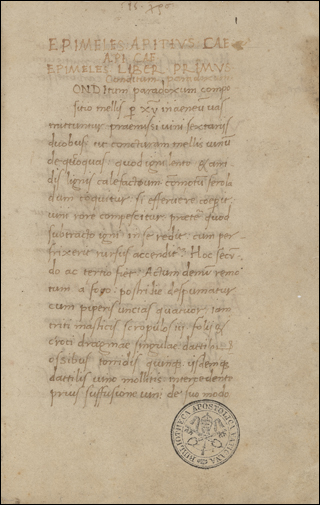 EPIMELES APITIUS CAE
EPIMELES LIBER PRIMVS
CONDItum paradoxum compo
sitio mellis p XV in aeneu vas
mittuntur praemissi vini sextariis
duobus ut cocturam mellis vinu
decoquas quod igni lento & ari
dis lignis calefactum comotu ferola
dum coquitur si efferuere coeper
vini rore compescitur praet quod
subtracto igni in se redit cum per
frixerit rursus accendit Hoc secun
do ac tertio fiet Ac tum demu remo
tum a foco postridie despumatur
cum piperis uncias quatuor iam
triti masticis scropulo iii folii &
croci dragmae singulae dactil
ossibus torridis quinq iisdemq
dactilis vino mollitis intercedente
prius suffusione vini de suo modo
BIBLIOTHECA APOSTOLICA VATICANA